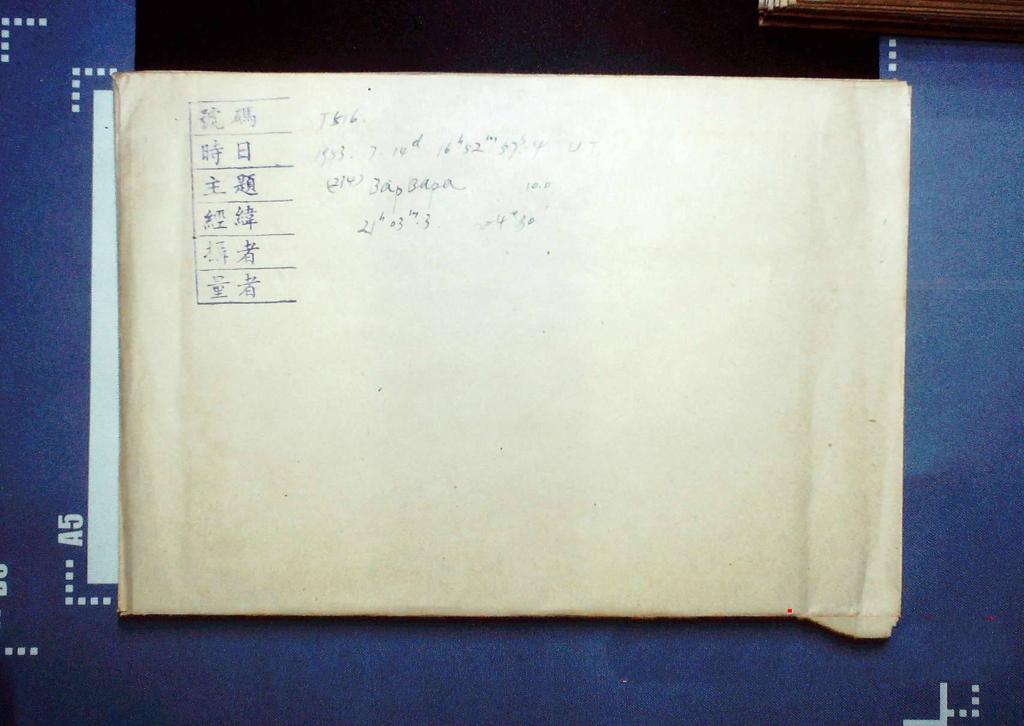 號碼 T516.
時日 1953. 7. 14ᵈ 16ʰ52ᵐ57ˢ.4 U.T.
主題 (234) Barbara 10.0
經緯 21ʰ03ᵐ.3 -04°30'
攝者
量者
A5